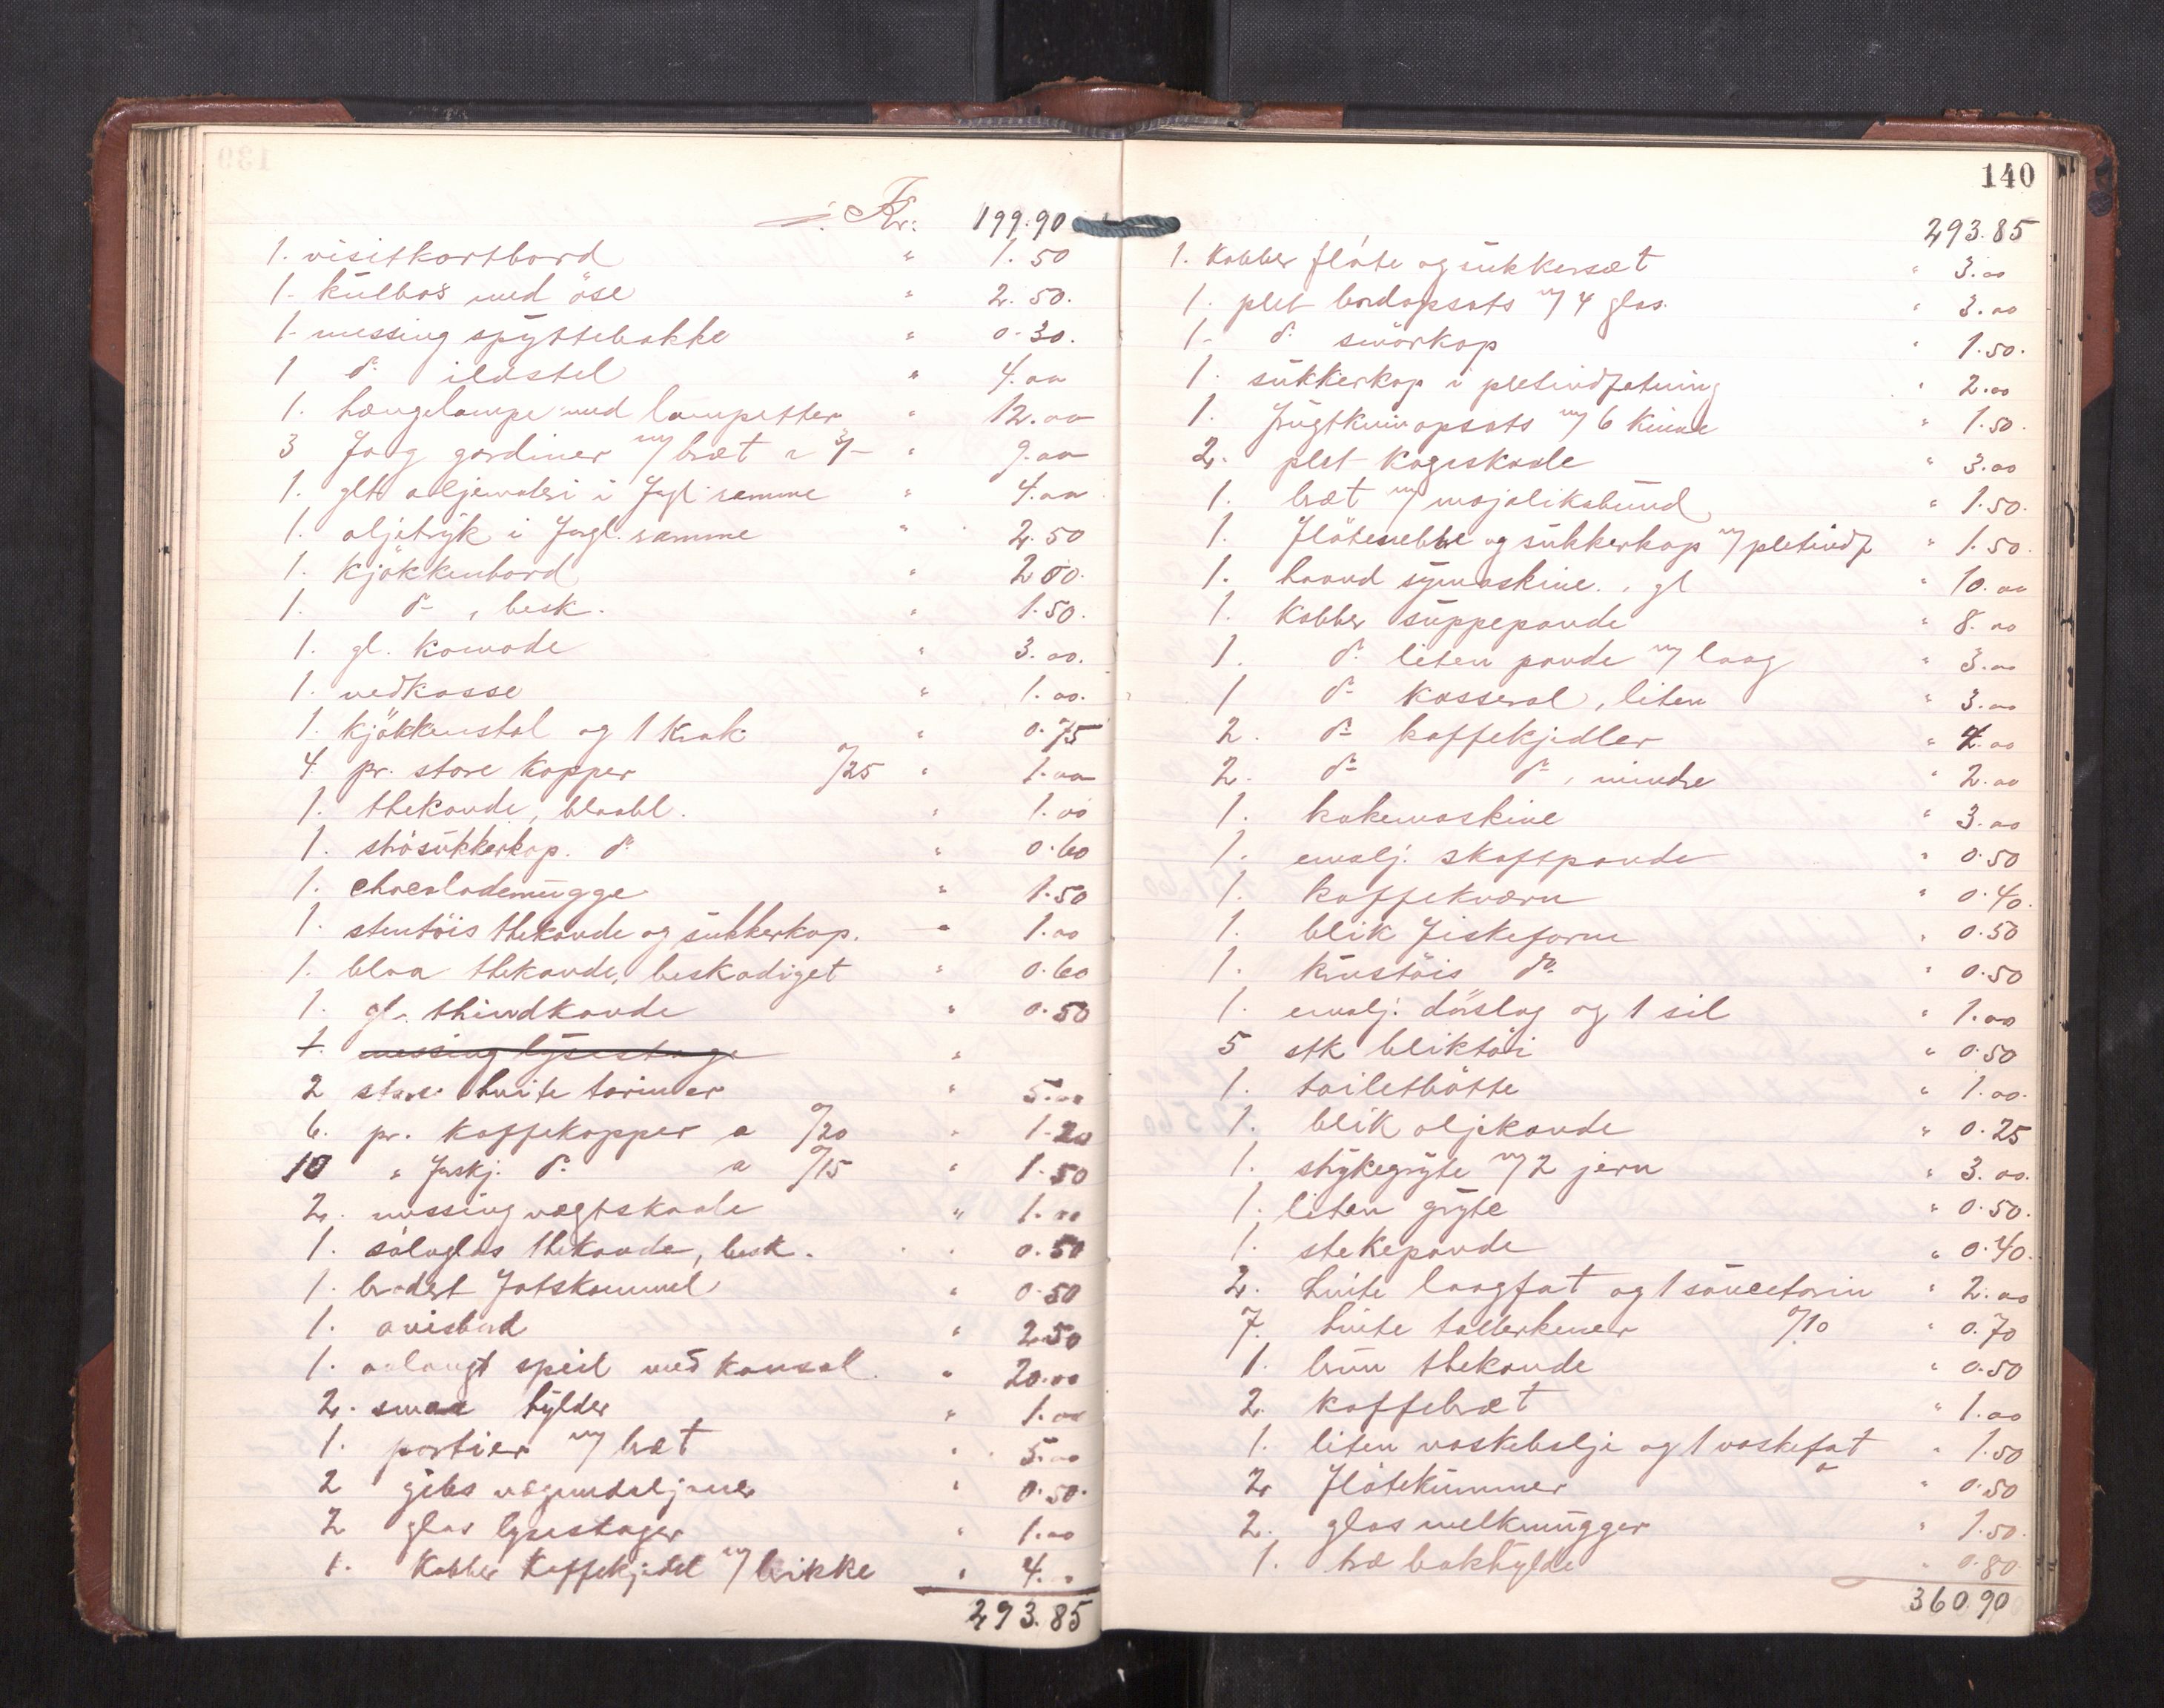 ÷ Kr: 199.90
1. visitkortbord " 1.50
1. kulboks med öse " 2.50.
1. messing spyttebakke " 0.30.
1 do ildstel " 4.00
1. hængelampe med lampetter " 12.00
3 fag gardiner m/ bræt a 3/- " 9.00
1. glt oljemaleri i fgl. ramme " 4.00
1. oljetryk i forgl. ramme " 2.50
1. kjökkenbord " 2.00.
1. do , besk. " 1.50.
1. gl. komode " 3.00.
1. vedkasse " 1.00.
1. kjökkenstol og 1 krak " 0.75
4 pr. store kopper 0/25 " 1.00
1. thekande, blaabl. " 1.00
1. strösukkerkop. do " 0.60
1. chocolademugge " 1.50
1. stentöis thekande og sukkerkop. " 1.00
1. blaa thekande, beskadiget " 0.60
1. gl. thindkande " 0.50
1. messing lysestage "
2 store hvite toriner " 5.00
6. pr. kaffekopper a 0/20 " 1.20
10 " forskj. do a 0/15 " 1.50
2. messing vægtskaale " 1.00
1. sölvglas thekande, besk. " 0.50
1. brodert fotskammel " 0.50
1. avisbord " 2.50
1. avlangt speil med konsol " 20.00
2. smaa hylder " 1.00
1. portier m/ bræt " 5.00
2 gibs vægmedaljoner " 0.50.
2 glas lysestager " 1.00
1. kobber kaffekjedel m/ brikke " 4.00
293.85
140
293.85
1. kobber flöte og sukkersæt " 3.00
1. plet bordopsats m/ 4 glas. " 3.00
1. do smörkop " 1.50.
1. sukkerkop i pletindfatning " 2.00
1. frugtknivopsats m/ 6 knive " 1.50.
2. plet kageskaale " 3.00
1. bræt m/ majolikabund " 1.50.
1. flötenebbe og sukkerkop m/ pletindf " 1.50.
1. haand symaskine, gl " 10.00
1. kobber suppepande " 8.00
1. do liten pande m/ laag " 3.00
1 do kasserol, liten " 3.00
2. do kaffekjedler " 4.00
2. do do, mindre " 2.00
1. kokemaskine " 3.00
1. emalj. skaftpande " 0.50
1. kaffekværn " 0.40.
1. blik fiskeform " 0.50
1. krustöis do " 0.50
1. emalj. dörslag og 1 sil " 1.00
5 stk bliktöi " 0.50
1. toiletbötte " 1.00.
1. blik oljekande " 0.25
1. strykegryte m/ 2 jern " 3.00.
1. liten gryte " 0.50.
1. stekepande " 0.40.
2. hvite laagfat og 1 saucetorin " 2.00
7. hvite tallerkener 0/10 " 0.70
1. brun thekande " 0.50
2. kaffebræt " 1.00
1. liten vaskebalje og 1 vaskefat " 1.50
2 flötekummer " 0.50
2. glas melkmugger " 1.50.
1. træ bokhylde " 0.80
360.90